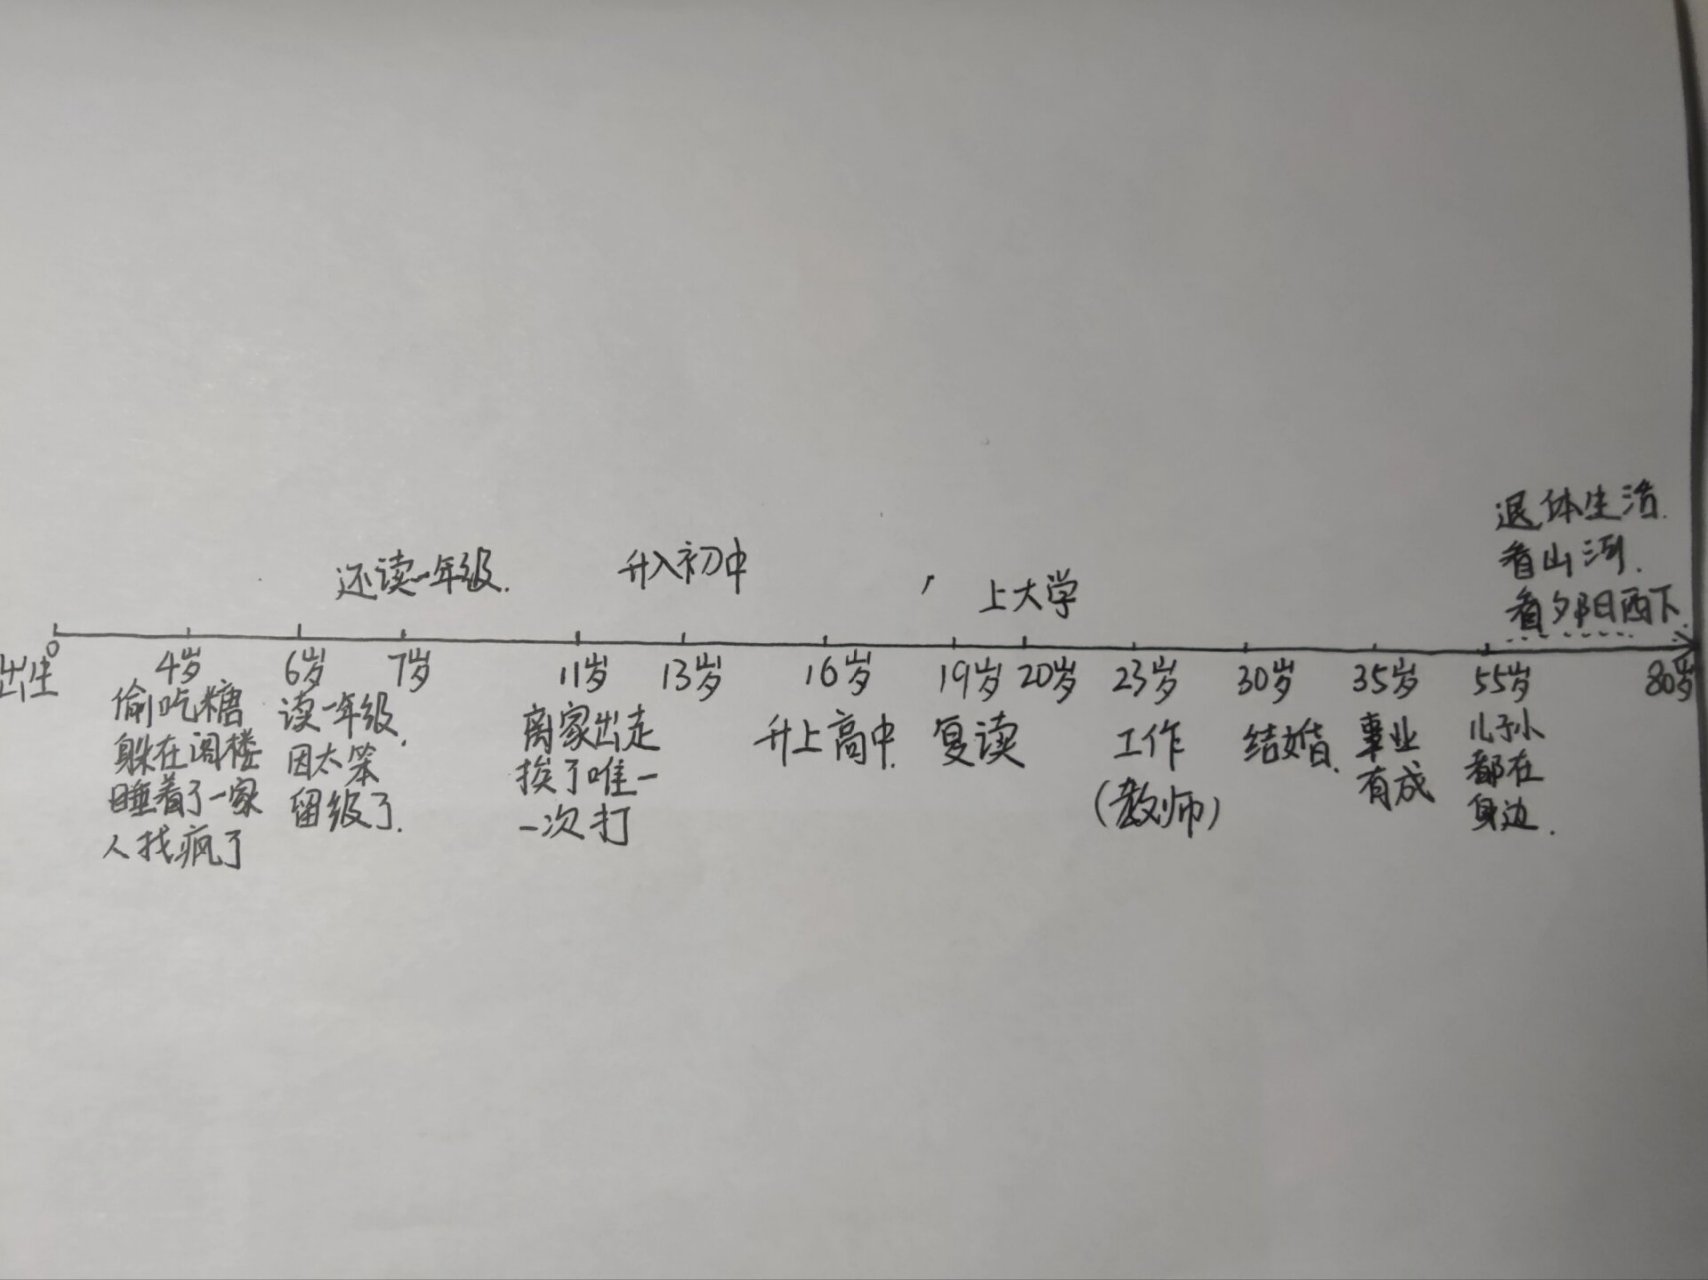 退休生活.
看山河.
看夕阳西下.
还读一年级.
升入初中
上大学
0
出生
4岁
6岁
7岁
11岁
13岁
16岁
19岁
20岁
23岁
30岁
35岁
55岁
80岁
偷吃糖
躲在阁楼
睡着了一家
人找疯了
读一年级,
因太笨
留级了.
离家出走
挨了唯一
一次打
升上高中.
复读
工作
(教师)
结婚.
事业
有成
儿孙
都在
身边.